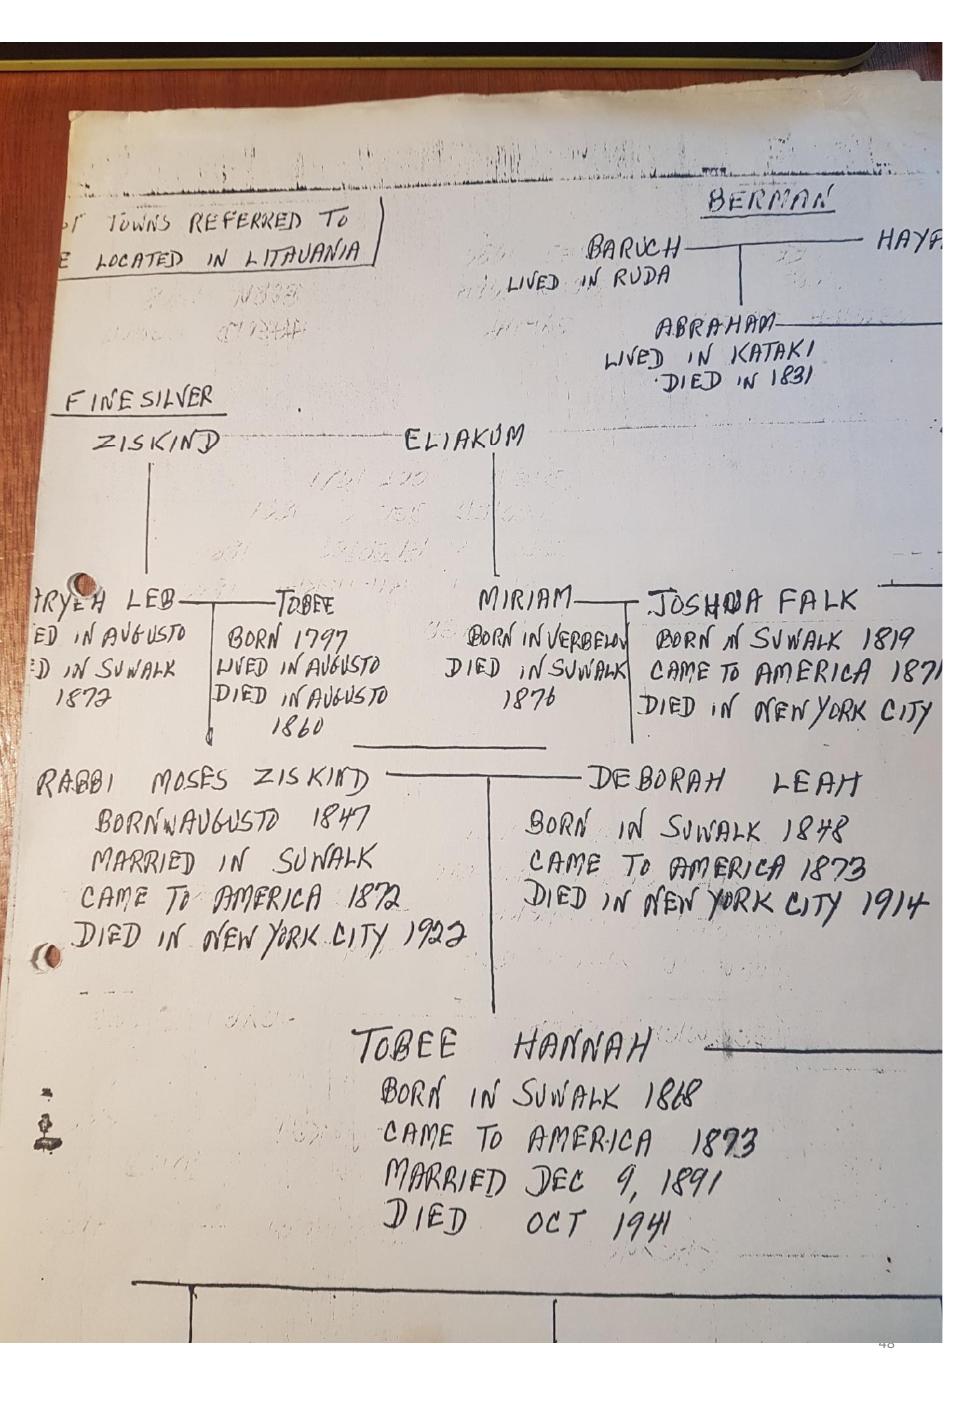 TOWNS REFERRED TO
LOCATED IN LITAUANIA
BERMAN
BARUCH HAYA
LIVED IN RUDA
ABRAHAM
LIVED IN KATAKI
DIED IN 1831
FINESILVER
ZISKIND ELIAKUM
ARYEH LEB TOBEE MIRIAM JOSHUA FALK
ED IN AUGUSTO BORN 1797 BORN IN VERBELOV BORN IN SUWALK 1819
ED IN SUWALK LIVED IN AUGUSTO DIED IN SUWALK CAME TO AMERICA 1871
1872 DIED IN AUGUSTO 1876 DIED IN NEW YORK CITY
1860
RABBI MOSES ZISKIND DEBORAH LEAH
BORN IN AUGUSTO 1847 BORN IN SUWALK 1848
MARRIED IN SUWALK CAME TO AMERICA 1873
CAME TO AMERICA 1872 DIED IN NEW YORK CITY 1914
DIED IN NEW YORK CITY 1922
TOBEE HANNAH
BORN IN SUWALK 1868
CAME TO AMERICA 1873
MARRIED DEC 9, 1891
DIED OCT 1941
48